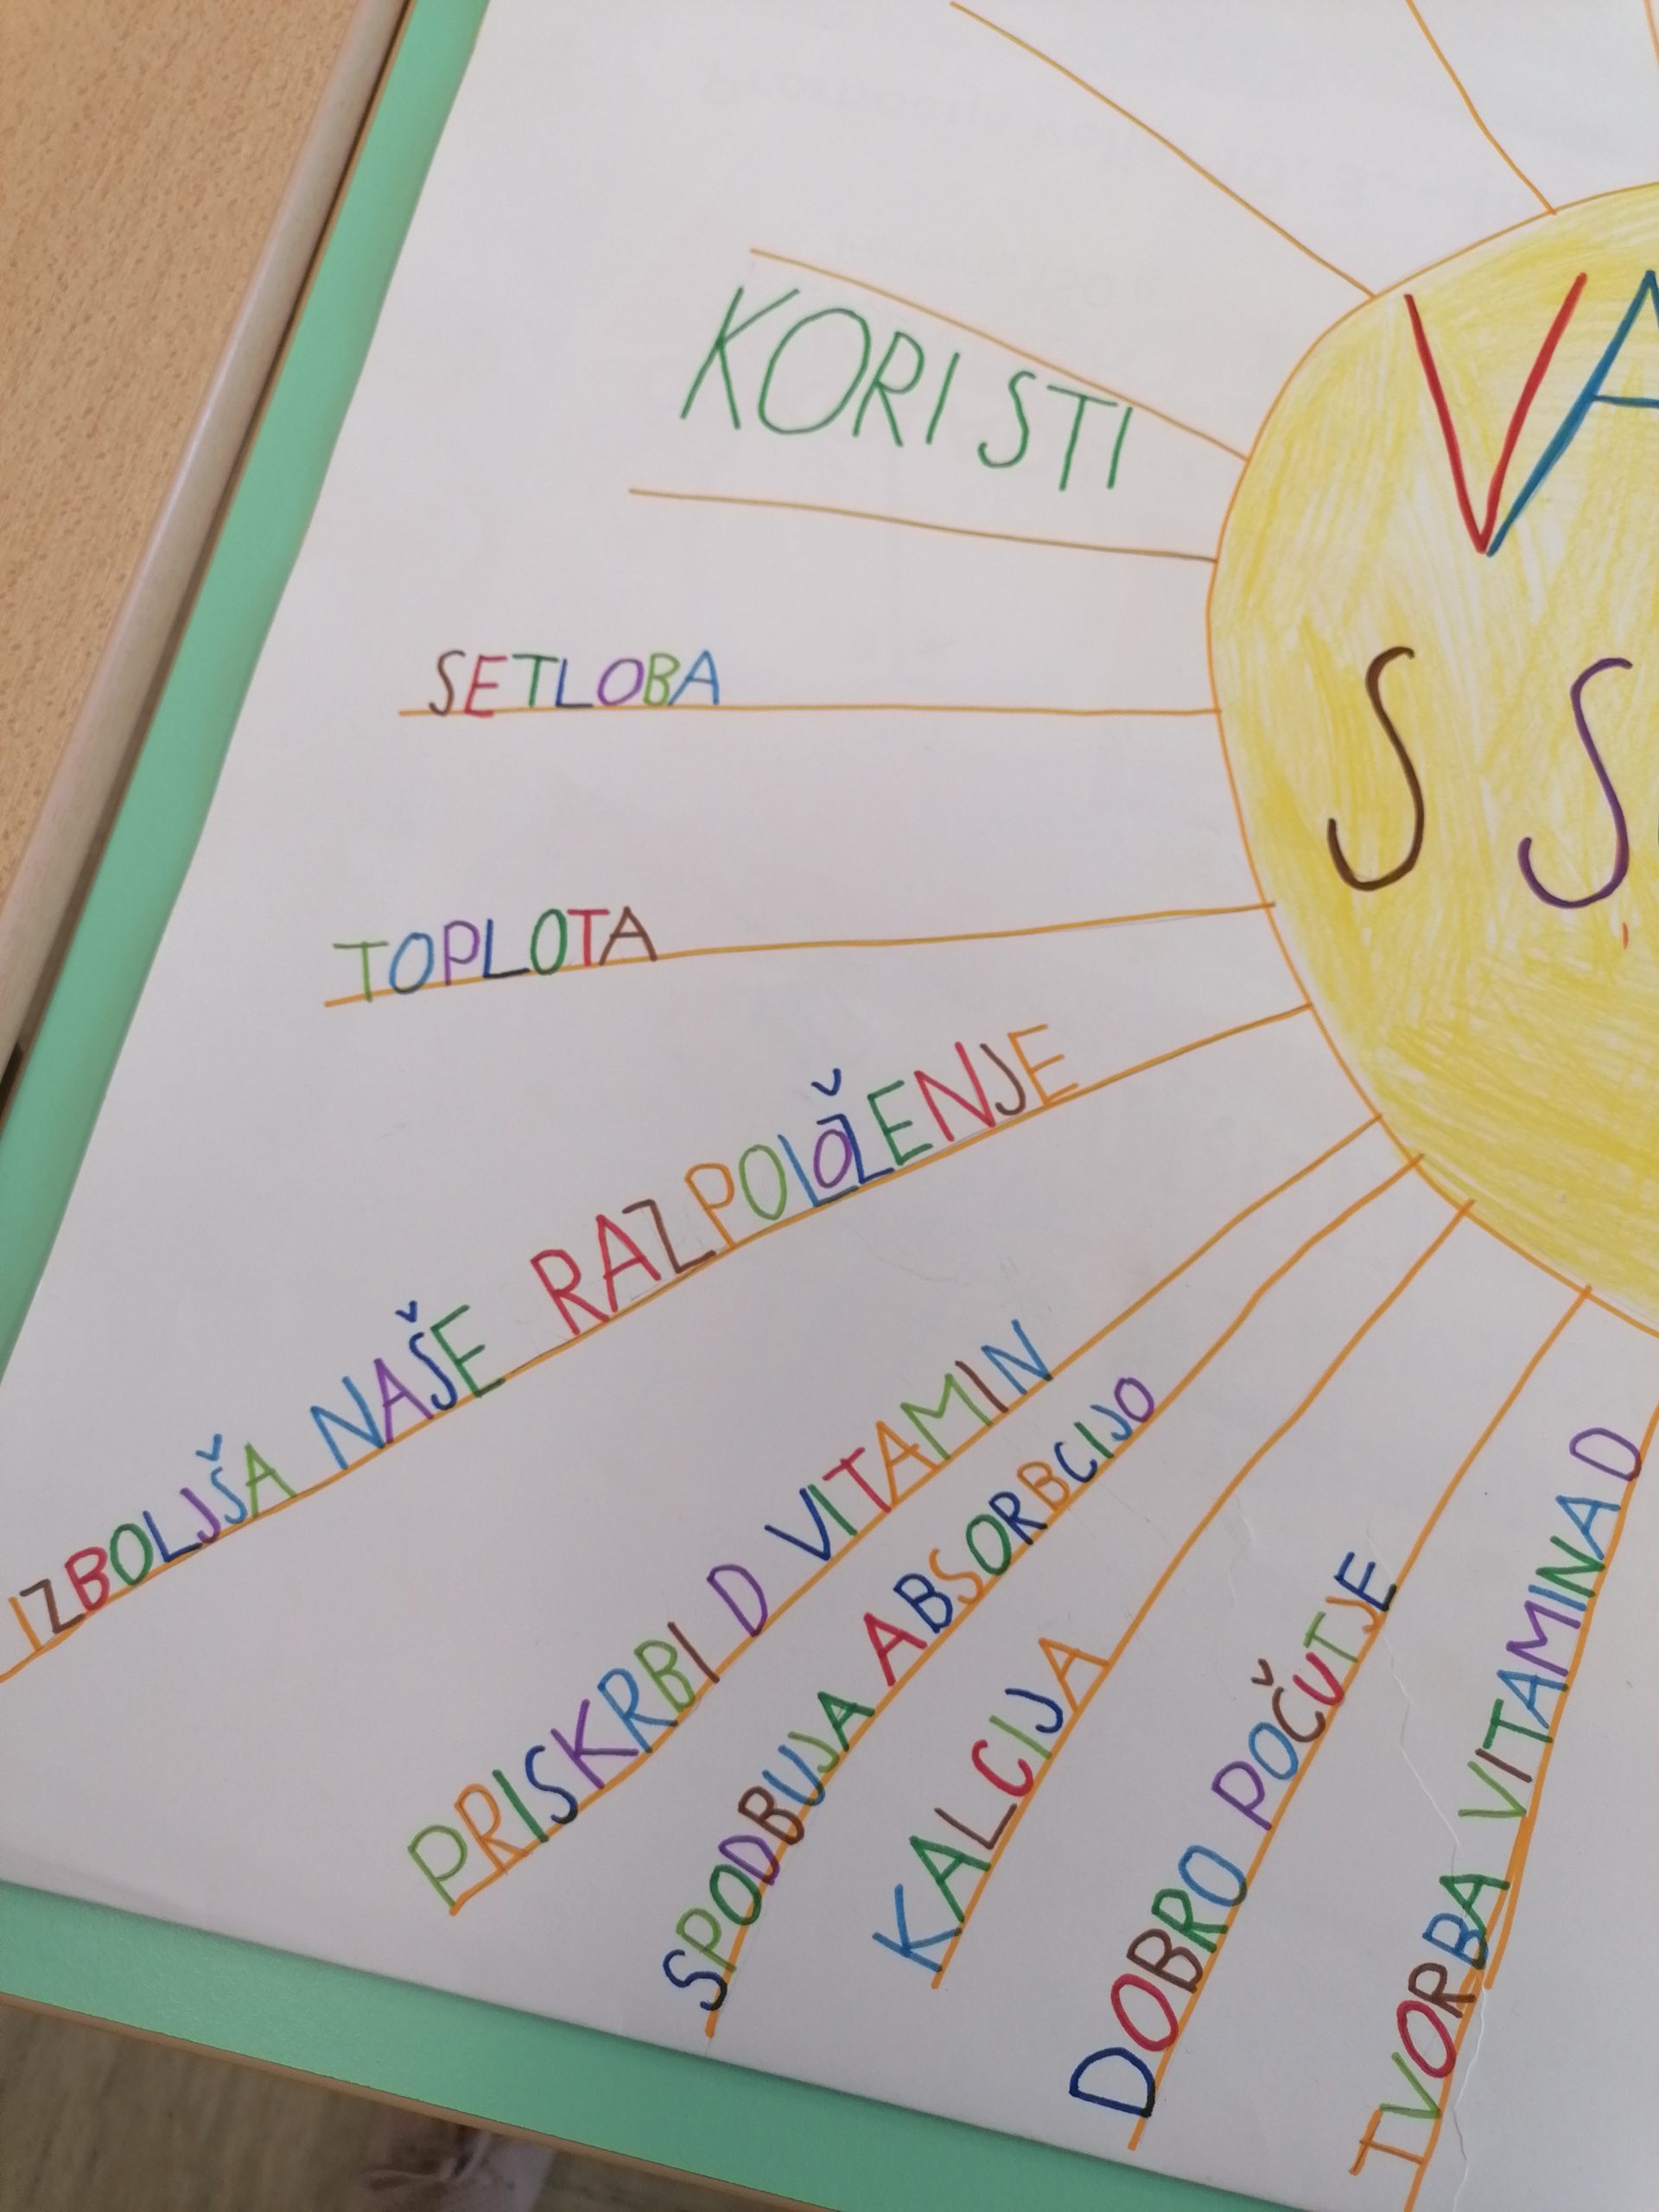 VA
S S
KORISTI
SETLOBA
TOPLOTA
IZBOLJŠA NAŠE RAZPOLOŽENJE
PRISKRBI D VITAMIN
SPODBUJA ABSORBCIJO
KALCIJA
DOBRO POČUTJE
TVORBA VITAMINA D